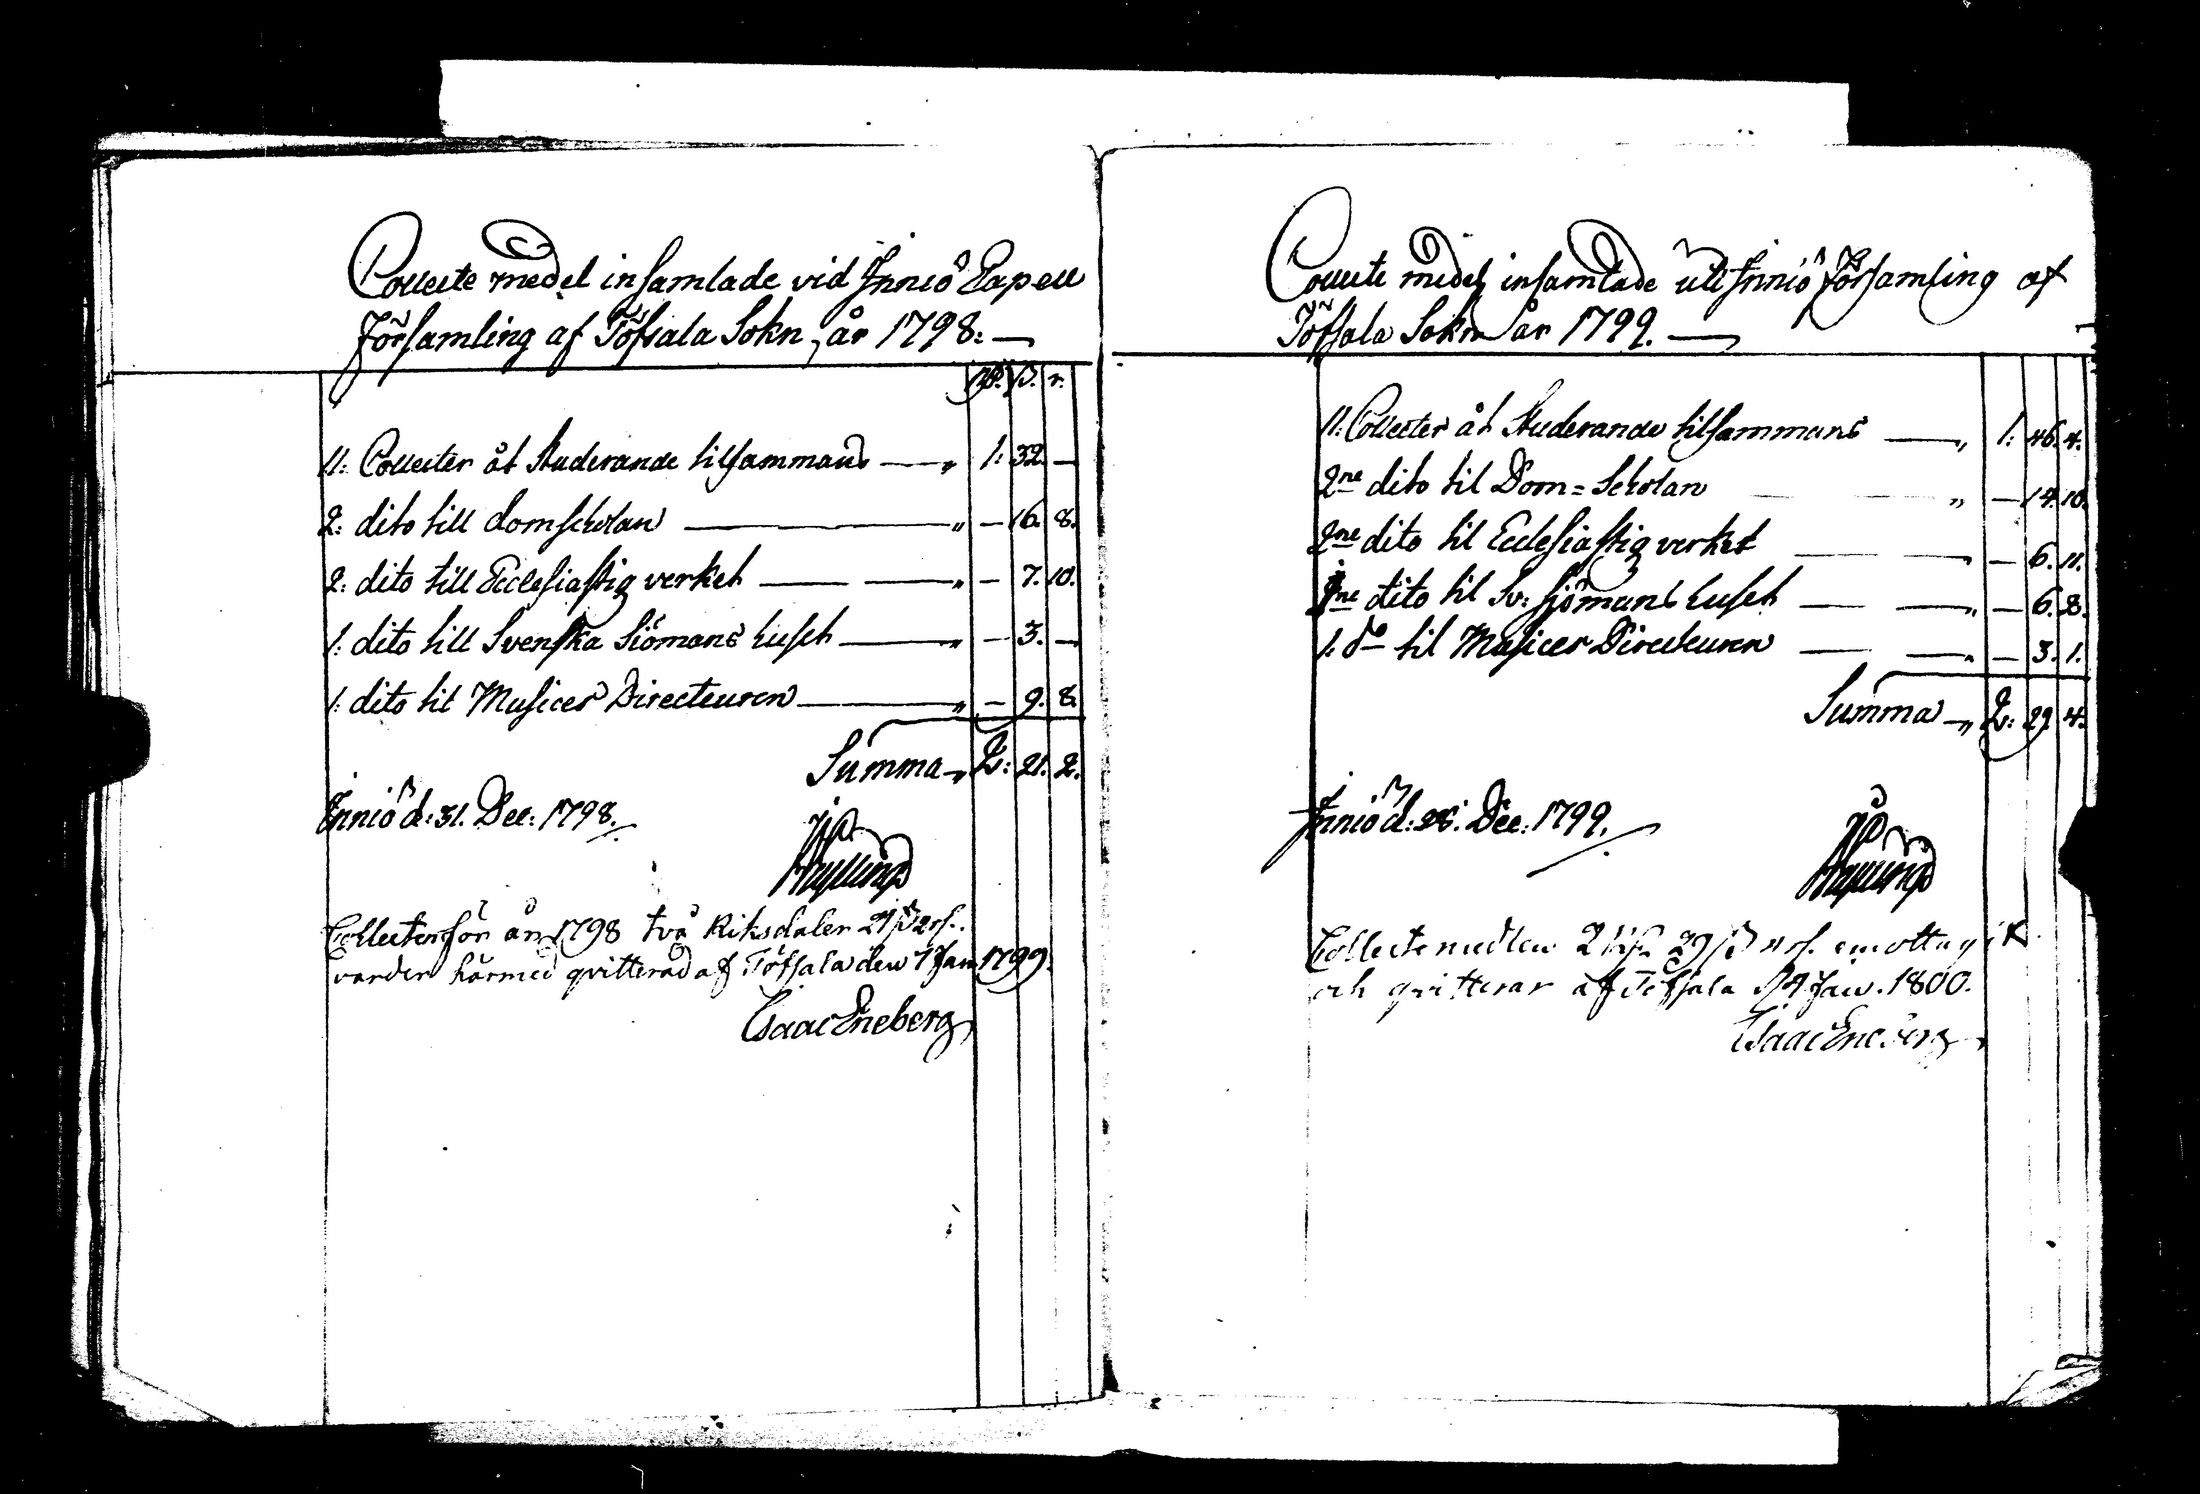 Collecte medel insamlade vid Iniö Capell
Församling af Töfsala Sokn, år 1798. —
Rd. ß. r.
11: Collecter åt Studerande tilsammans — „ 1: 32. —
2: dito till domscholan — „ — 16. 8.
2: dito till Ecclesiastiq verket — „ — 7. 10.
1: dito till Svenska Siömans huset — „ — 3. —
1: dito til Musices Directeuren — „ — 9. 8.
Summa — „ 2: 21. 2.
Iniö d: 31. Dec: 1798.
Collecter för år 1798 två Riksdaler 21 ß 2 rs.
varder härmed qvitterad af Töfsala den 7 Jan 1799.
Isaac Eneberg
Collecte medel insamlade uti Iniö Församling af
Töfsala Sokn år 1799. —
11: Collecter åt Studerande tilsammans — „ 1: 46. 4.
2ne dito til Dom=Scholan „ — 14. 10.
2ne dito til Ecclesiastiq verket — „ — 6. 11.
dito til Sv: Sjömans huset — „ — 6. 8.
1: do til Musices Directeuren — „ — 3. 1.
Summa — „ 2: 29. 4.
Iniö d: 26. Dec: 1799.
Collecte medlen 2 29 ß 4 rs. emottagit
och qvitterar af Töfsala Jan. 1800.
Isaac Eneberg